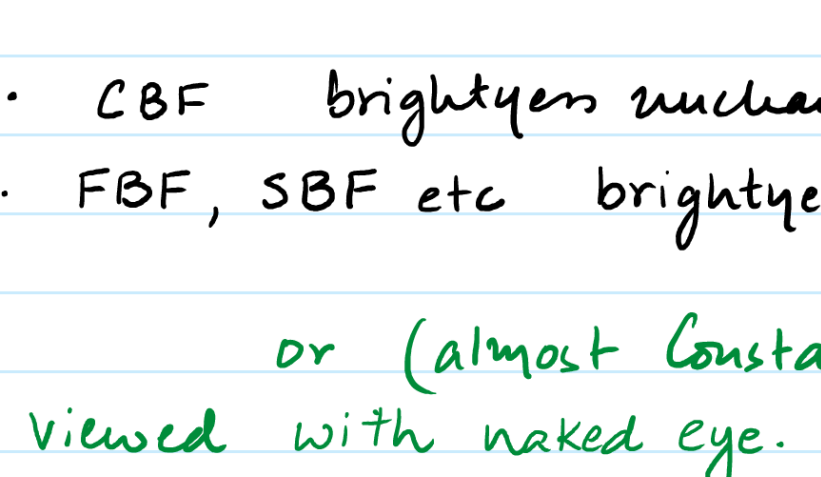 • CBF brightyess unchan
• FBF, SBF etc brightye
or (almost Consta
viewed with naked eye.